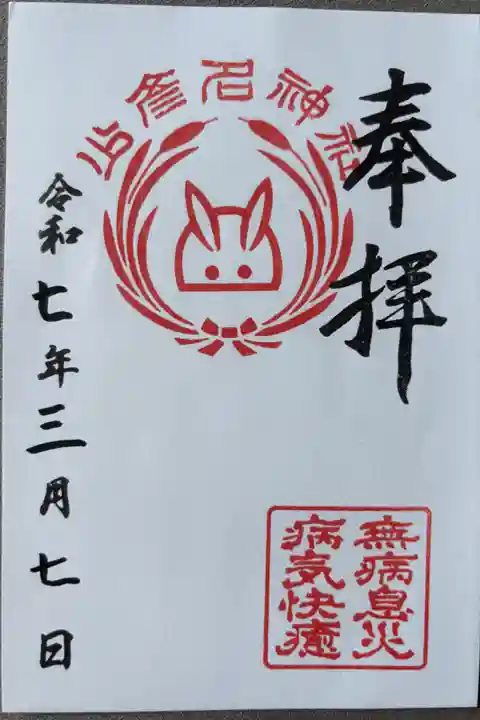 少彦名神社
奉拝
無病息災
病気快癒
令和七年三月七日